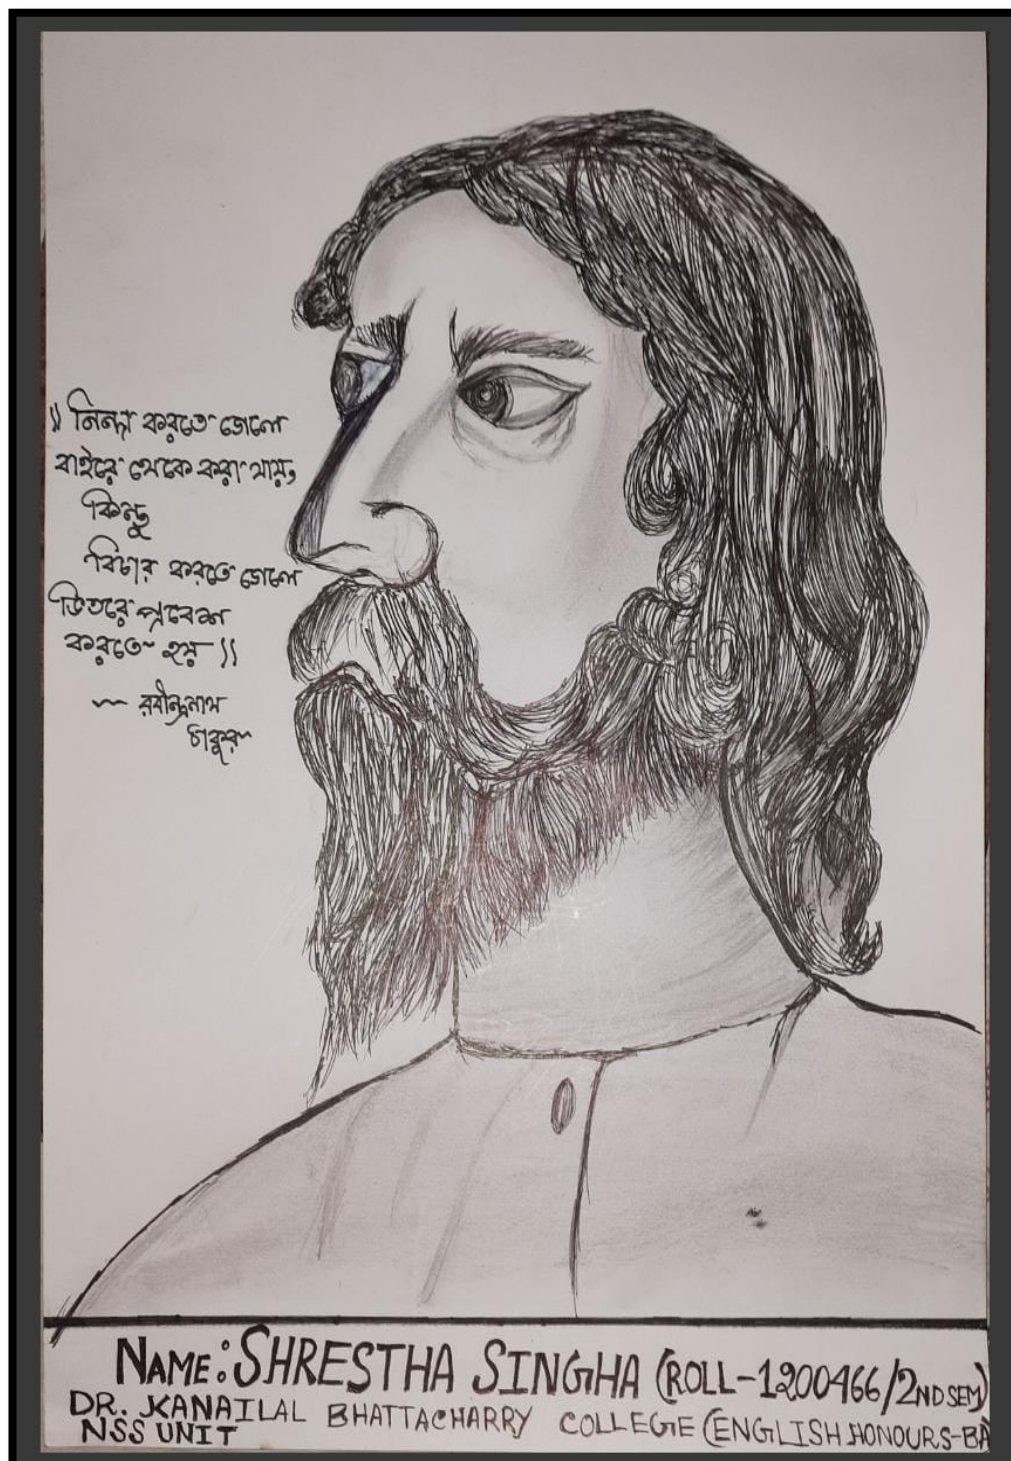 " নিন্দা করতে গেলে
বাইরে থেকে করা যায়,
কিন্তু
বিচার করতে গেলে
ভিতরে প্রবেশ
করতে হয় "
~ রবীন্দ্রনাথ
ঠাকুর
NAME: SHRESTHA SINGHA (ROLL-1200466/2ND SEM)
DR. KANAILAL BHATTACHARRY COLLEGE (ENGLISH HONOURS-BA
NSS UNIT